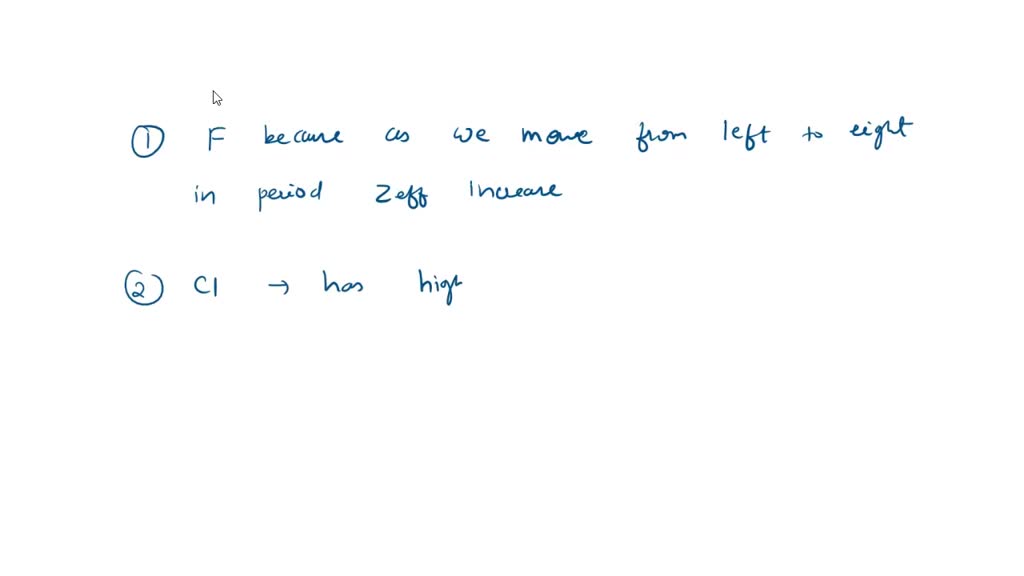 ① F because as we move from left to right
in period Zeff increase
② Cl → has high